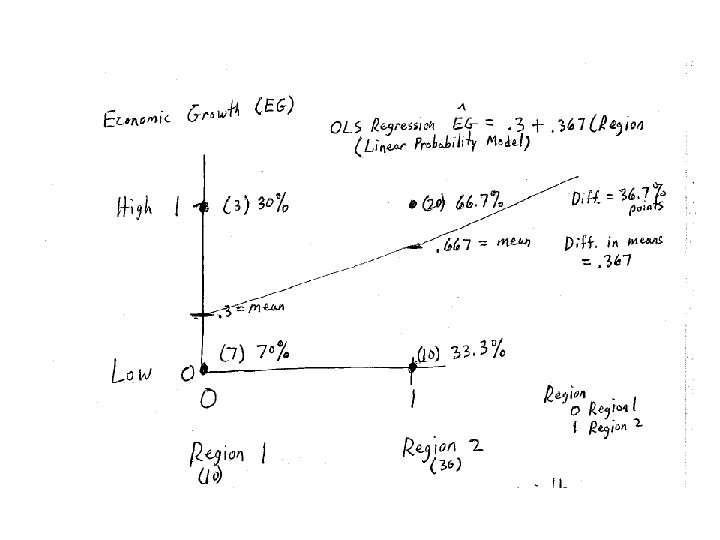 Economic Growth (EG)
OLS Regression ^EG = .3 + .367(Region
(Linear Probability Model)
High 1 (3) 30% (20) 66.7% Diff. = 36.7%
points
.667 = mean Diff. in means
= .367
.3 = mean
Low 0 (7) 70% (10) 33.3%
0 1
Region
0 Region 1
1 Region 2
Region 1 Region 2
(10) (30)